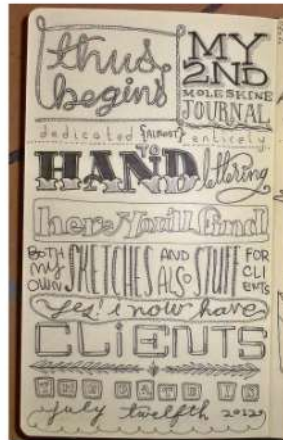 thus begins
MY 2ND MOLESKINE JOURNAL
dedicated {almost} entirely
TO
HAND lettering
here you'll find
BOTH MY OWN SKETCHES AND ALSO STUFF FOR CLIENTS
yes! i now have
CLIENTS
THE DATE IS
july twelfth 2012